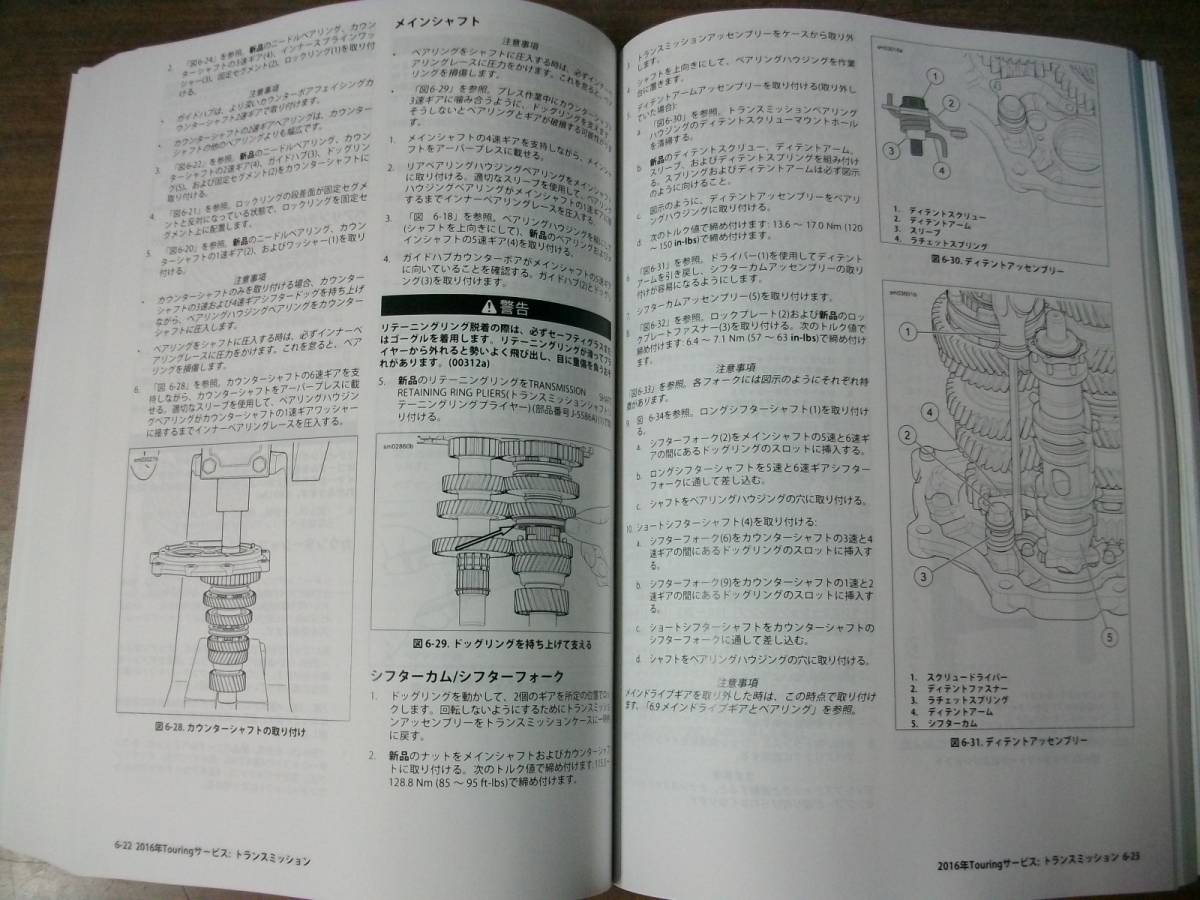 2. 「図6-24」を参照。新品のニードルベアリング、カウン
ターシャフトの3速ギア(4)、インナースプラインワッ
シャー(3)、固定セグメント(2)、ロックリング(1)を取り付
ける。
注意事項
• ガイドハブは、より深いカウンターボアフェイシングカ
ウンターシャフト2速ギアで取り付けます。
• カウンターシャフトの2速ギアベアリングは、カウンター
シャフトの他のベアリングよりも幅広です。
3. 「図6-22」を参照。新品のニードルベアリング、カウン
ターシャフトの2速ギア(4)、ガイドハブ(3)、ドッグリン
グ(5)、および固定セグメント(2)をカウンターシャフトに
取り付ける。
4. 「図6-21」を参照。ロックリングの段差面が固定セグメ
ントと反対になっている状態で、ロックリングを固定セ
グメント上に配置します。
5. 「図6-20」を参照。新品のニードルベアリング、カウン
ターシャフトの1速ギア(2)、およびワッシャー(1)を取り
付ける。
注意事項
• カウンターシャフトのみを取り付ける場合、カウンター
シャフトの3速および4速ギアシフタードッグを持ち上げ
ながら、ベアリングハウジングベアリングをカウンター
シャフトに圧入します。
• ベアリングをシャフトに圧入する時は、必ずインナーベ
アリングレースに圧力をかけます。これを怠ると、ベア
リングを損傷します。
6. 「図 6-28」を参照。カウンターシャフトの6速ギアを支
持しながら、カウンターシャフトをアーバープレスに載
せる。適切なスリーブを使用して、ベアリングハウジン
グベアリングがカウンターシャフトの1速ギアワッシャー
に接するまでインナーベアリングレースを圧入する。
1
sm03027b
図6-28. カウンターシャフトの取り付け
6-22 2016年Touringサービス: トランスミッション
メインシャフト
注意事項
• ベアリングをシャフトに圧入する時は、必ずインナーベ
アリングレースに圧力をかけます。これを怠ると、ベア
リングを損傷します。
• 「図6-29」を参照。プレス作業中にカウンターシャフト
3速ギアに噛み合うように、ドッグリングを支えます。
そうしないとベアリングとギアが破損する可能性が
す。
1. メインシャフトの4速ギアを支持しながら、メインシャ
フトをアーバープレスに載せる。
2. リアベアリングハウジングベアリングをメインシャフト
に取り付ける。適切なスリーブを使用して、ベアリング
ハウジングベアリングがメインシャフトの1速ギアに接
するまでインナーベアリングレースを圧入する。
3. 「図 6-18」を参照。ベアリングハウジングを
(シャフトを上向きにして)、新品のベアリングおよび
インシャフトの5速ギア(4)を取り付ける。
4. ガイドハブカウンターボアがメインシャフトの5速ギア
に向いていることを確認する。ガイドハブ(2)とドッグリ
ング(3)を取り付けます。
警告
リテーニングリング脱着の際は、必ずセーフティグラスまた
はゴーグルを着用します。リテーニングリングが滑ってプラ
イヤーから外れると勢いよく飛び出し、目に重傷を負うおそ
れがあります。(00312a)
5. 新品のリテーニングリングをTRANSMISSION SHAFT
RETAINING RING PLIERS(トランスミッションシャフトリ
テーニングリングプライヤー)(部品番号J-5586A)で取
り付ける。
sm02860b
図6-29. ドッグリングを持ち上げて支える
シフターカム/シフターフォーク
1. ドッグリングを動かして、2個のギアを所定の位置でロッ
クします。回転しないようにするためにトランスミッシ
ョンアッセンブリーをトランスミッションケースに一時的
に戻す。
2. 新品のナットをメインシャフトおよびカウンターシャフ
トに取り付ける。次のトルク値で締め付けます: 115.3～
128.8 Nm (85 ～ 95 ft-lbs)で締め付けます。
3. トランスミッションアッセンブリーをケースから取り外
します。
4. シャフトを上向きにして、ベアリングハウジングを作業
台に置きます。
5. ディテントアームアッセンブリーを取り付ける(取り外し
ていた場合):
a. 「図6-30」を参照。トランスミッションベアリング
ハウジングのディテントスクリューマウントホール
を清掃する。
b. 新品のディテントスクリュー、ディテントアーム、
スリーブ、およびディテントスプリングを組み付け
る。スプリングおよびディテントアームは必ず図示
のように向けること。
c. 図示のように、ディテントアッセンブリーをベアリ
ングハウジングに取り付ける。
d. 次のトルク値で締め付けます: 13.6 ～ 17.0 Nm (120
～ 150 in-lbs)で締め付けます。
6. 「図6-31」を参照。ドライバー(1)を使用してディテント
アームを引き戻し、シフターカムアッセンブリーの取り
付けが容易になるようにします。
7. シフターカムアッセンブリー(5)を取り付けます。
8. 「図6-32」を参照。ロックプレート(2)および新品のロッ
クプレートファスナー(3)を取り付ける。次のトルク値で
締め付けます: 6.4 ～ 7.1 Nm (57 ～ 63 in-lbs)で締め付け
ます。
注意事項
「図6-33」を参照。各フォークには図示のようにそれぞれ特
徴があります。
9. 図 6-34を参照。ロングシフターシャフト(1)を取り付け
る。
a. シフターフォーク(2)をメインシャフトの5速と6速ギ
アの間にあるドッグリングのスロットに挿入する。
b. ロングシフターシャフトを5速と6速ギアシフター
フォークに通して差し込む。
c. シャフトをベアリングハウジングの穴に取り付ける。
10. ショートシフターシャフト(4)を取り付ける:
a. シフターフォーク(6)をカウンターシャフトの3速と4
速ギアの間にあるドッグリングのスロットに挿入す
る。
b. シフターフォーク(9)をカウンターシャフトの1速と2
速ギアの間にあるドッグリングのスロットに挿入す
る。
c. ショートシフターシャフトをカウンターシャフトの
シフターフォークに通して差し込む。
d. シャフトをベアリングハウジングの穴に取り付ける。
注意事項
メインドライブギアを取り外した時は、この時点で取り付け
ます。「6.9 メインドライブギアとベアリング」を参照。
1
2
3
4
1. ディテントスクリュー
2. ディテントアーム
3. スリーブ
4. ラチェットスプリング
図6-30. ディテントアッセンブリー
1
4
2
3
5
1. スクリュードライバー
2. ディテントファスナー
3. ラチェットスプリング
4. ディテントアーム
5. シフターカム
図6-31. ディテントアッセンブリー
2016年Touringサービス: トランスミッション 6-23